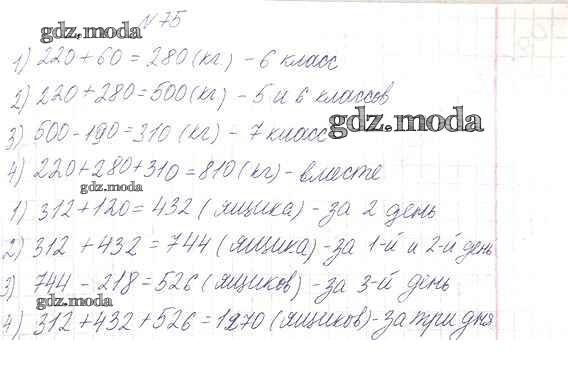 № 75
gdz.moda
1) 220 + 60 = 280 (кг) - 6 класс
2) 220 + 280 = 500 (кг) - 5 и 6 классов
3) 500 - 190 = 310 (кг) - 7 класс
gdz.moda
4) 220 + 280 + 310 = 810 (кг) - вместе
gdz.moda
1) 312 + 120 = 432 (ящика) - за 2 день
2) 312 + 432 = 744 (ящика) - за 1-й и 2-й день
3) 744 - 218 = 526 (ящиков) - за 3-й день
gdz.moda
4) 312 + 432 + 526 = 1270 (ящиков) - за три дня